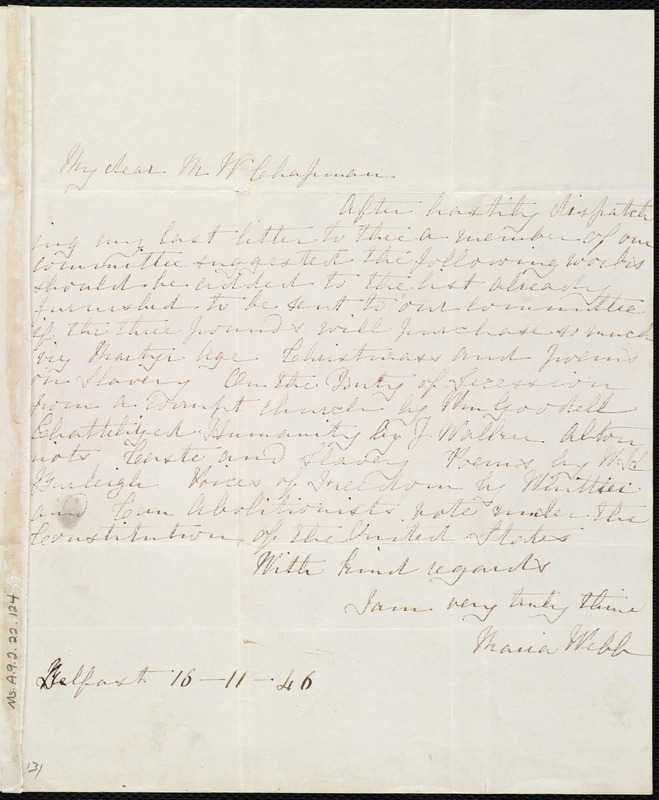 My dear M W Chapman
After hastily dispatch
ing my last letter to thee a member of our
committee suggested the following works
should be added to the list already
furnished to be sent to our committee
if the three pounds will purchase so much
viz Martyr Age Christmass and poems
on Slavery On the Duty of Secession
from a corrupt church by Wm Goodell
Chattelized Humanity by J Walker Alton
riots Caste and Slavery Poems by W H
Burleigh Voices of Freedom by Whittier
and Can Abolitionists vote under the
Constitution of the United States
With kind regards
I am very truly thine
Maria Webb
Belfast 16-11-46
Ms.A.9.2.22.124
131